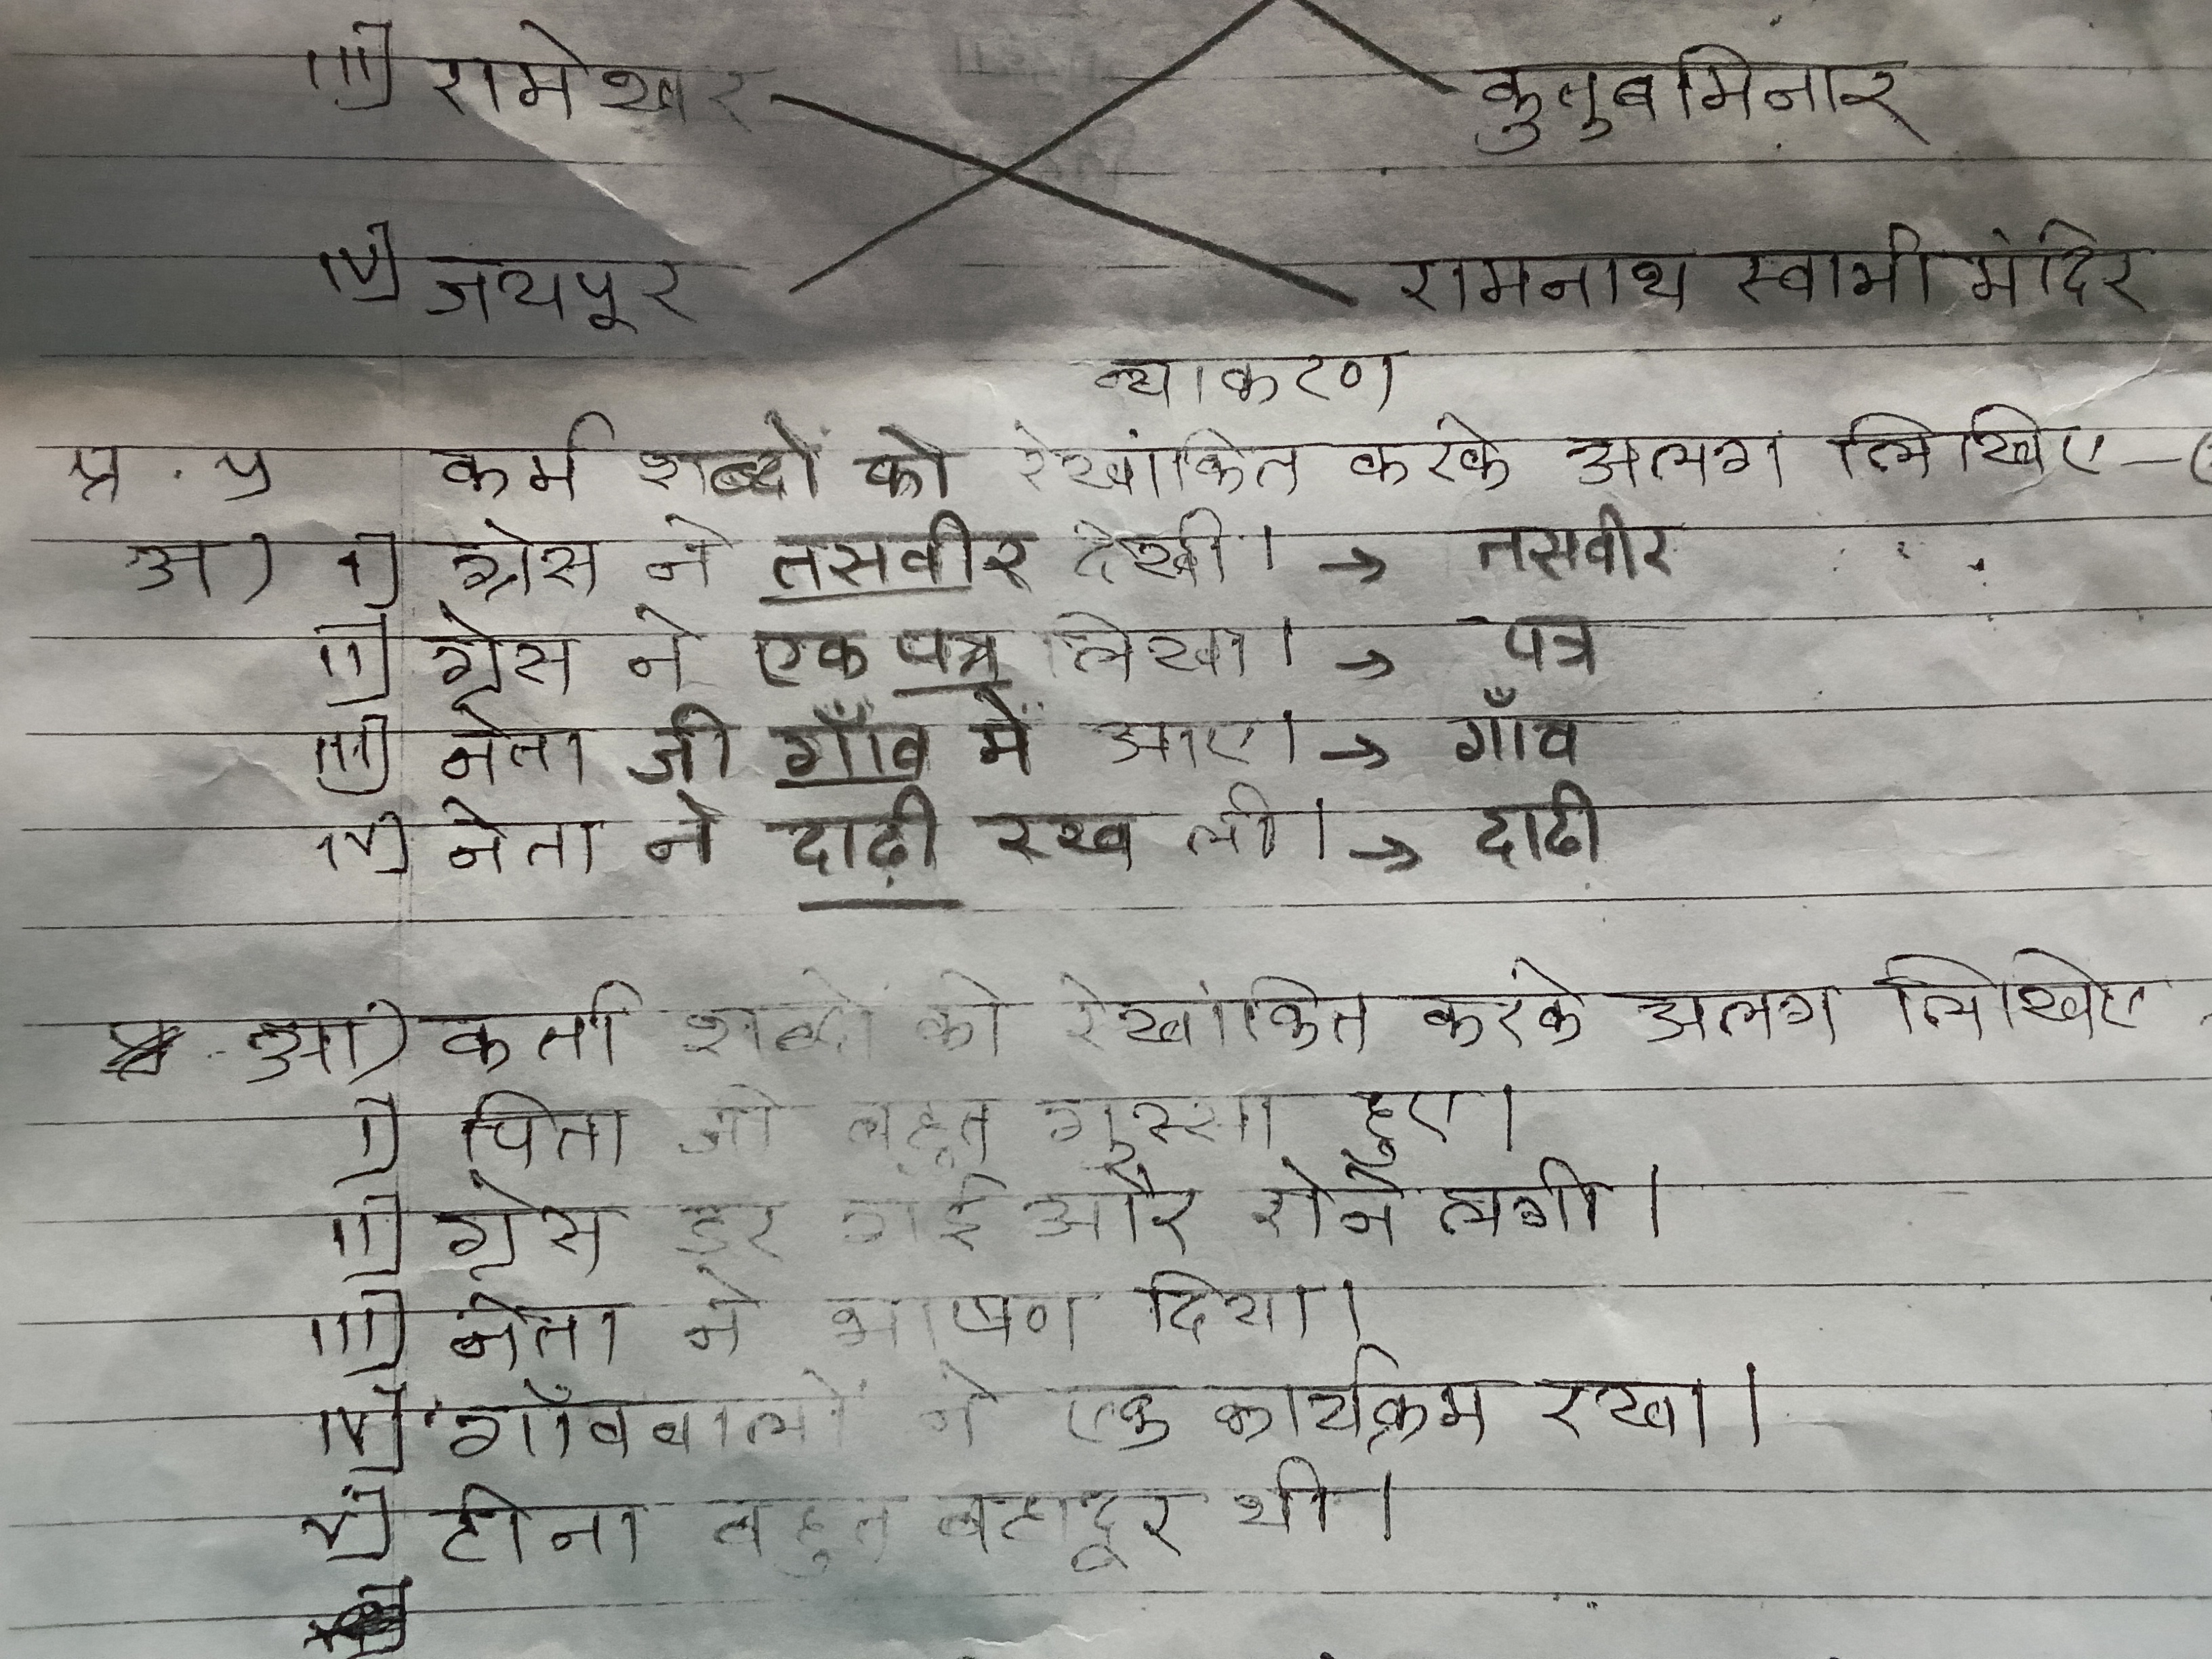 iii] रामेश्वर कुतुबमिनार
iv] जयपूर रामनाथ स्वामी मंदिर
व्याकरण
प्र. ५ कर्म शब्दों को रेखांकित करके अलग लिखिए -(
अ) i] ग्रेस ने तसवीर देखी। → तसवीर
ii] ग्रेस ने एक पत्र लिखा। → पत्र
iii] नेता जी गाँव में आए। → गाँव
iv] नेता ने दाढ़ी रख ली। → दाढी
आ) कर्ता शब्दों को रेखांकित करके अलग लिखिए
i] पिता जी बहुत गुस्सा हुए।
ii] ग्रेस डर गई और रोने लगी।
iii] नेता ने भाषण दिया।
iv] गाँववालों ने एक कार्यक्रम रखा।
v] टीना बहुत बहादूर थी।